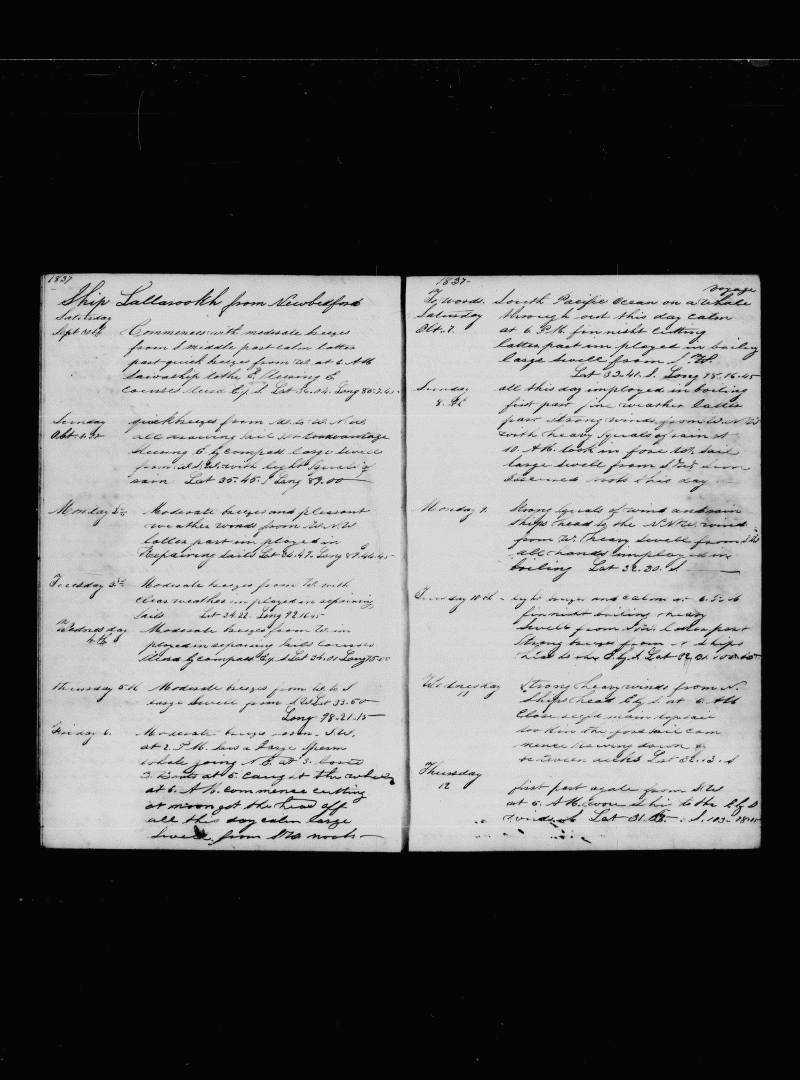 1837
Ship Lallarookh from Newbedford
Saturday
Sept 30th Commences with moderate breezes
from S. middle part calm latter
part quick breezes from W. at 6 AM
saw a ship to the E. Steering E.
courses Steed E by S. Lat 36.04. Long
Sunday
Oct 1. quick breezes from
all drawing sail to advantage
Steering E by compass large swell
from S.S.W. with light squals of
rain Lat 35.45. S Long 89.00
Monday 2 Moderate breezes and pleasant
weather winds from W.N.W
latter part imployed in
Repairing sails Lat 34.47. Long
Tuesday 3 Moderate breezes from W. with
clear weather imployed in repairing
sails Lat 34.22 Long 92.16.45
Wednesday
4th Moderate breezes from W. im
ployed in repairing sails courses
Steed by compass E by S Lat 34.01 Long
Thursday 5th Moderate breezes from W. to S
large swell from S W Lat 33.50
Long 98.21.15
Friday 6. Moderate breezes from S.W.
at 2. P.M. saw a large Sperm
whale going N E. at 3. lowed
3 Boats at 5 caught the whale
at 6. A M. commence cutting
at noon got the head off
all this day calm large
swell from
1837-
Towards. South Pacific Ocean on a Whale
voyage
Saturday through out this day calm
Oct. 7. at 6 P.M. finnisht cutting
latter part imployed in boiling
large swell from S W.
Lat 33.41. S. Long 98.16.45
Sunday
8. all this day imployed in boiling
first part fine weather latter
part strong winds from W. N W
with heavy squals of rain at
10. A M. took in fore top sail
large swell from
this day
Monday 9. Strong squals of wind and rain
ships head to the N.N.W. wind
from W. heavy swell from
all hands imployed in
boiling Lat 32.30. S
Tuesday 10th light breezes and calm at
finnisht boiling heavy
swell from S.W. latter part
strong breezes from N ships
head to the E by S. Lat
Wednesday
11 Strong heavy winds from N.
Ships head E by S. at 6 AM
Close reeft main topsail
took in the fore sail com
mence
between decks Lat 32.13. S
Thursday
12 first part a gale from S W
at 6. A M. wore ship to the E by S
Lat 31.